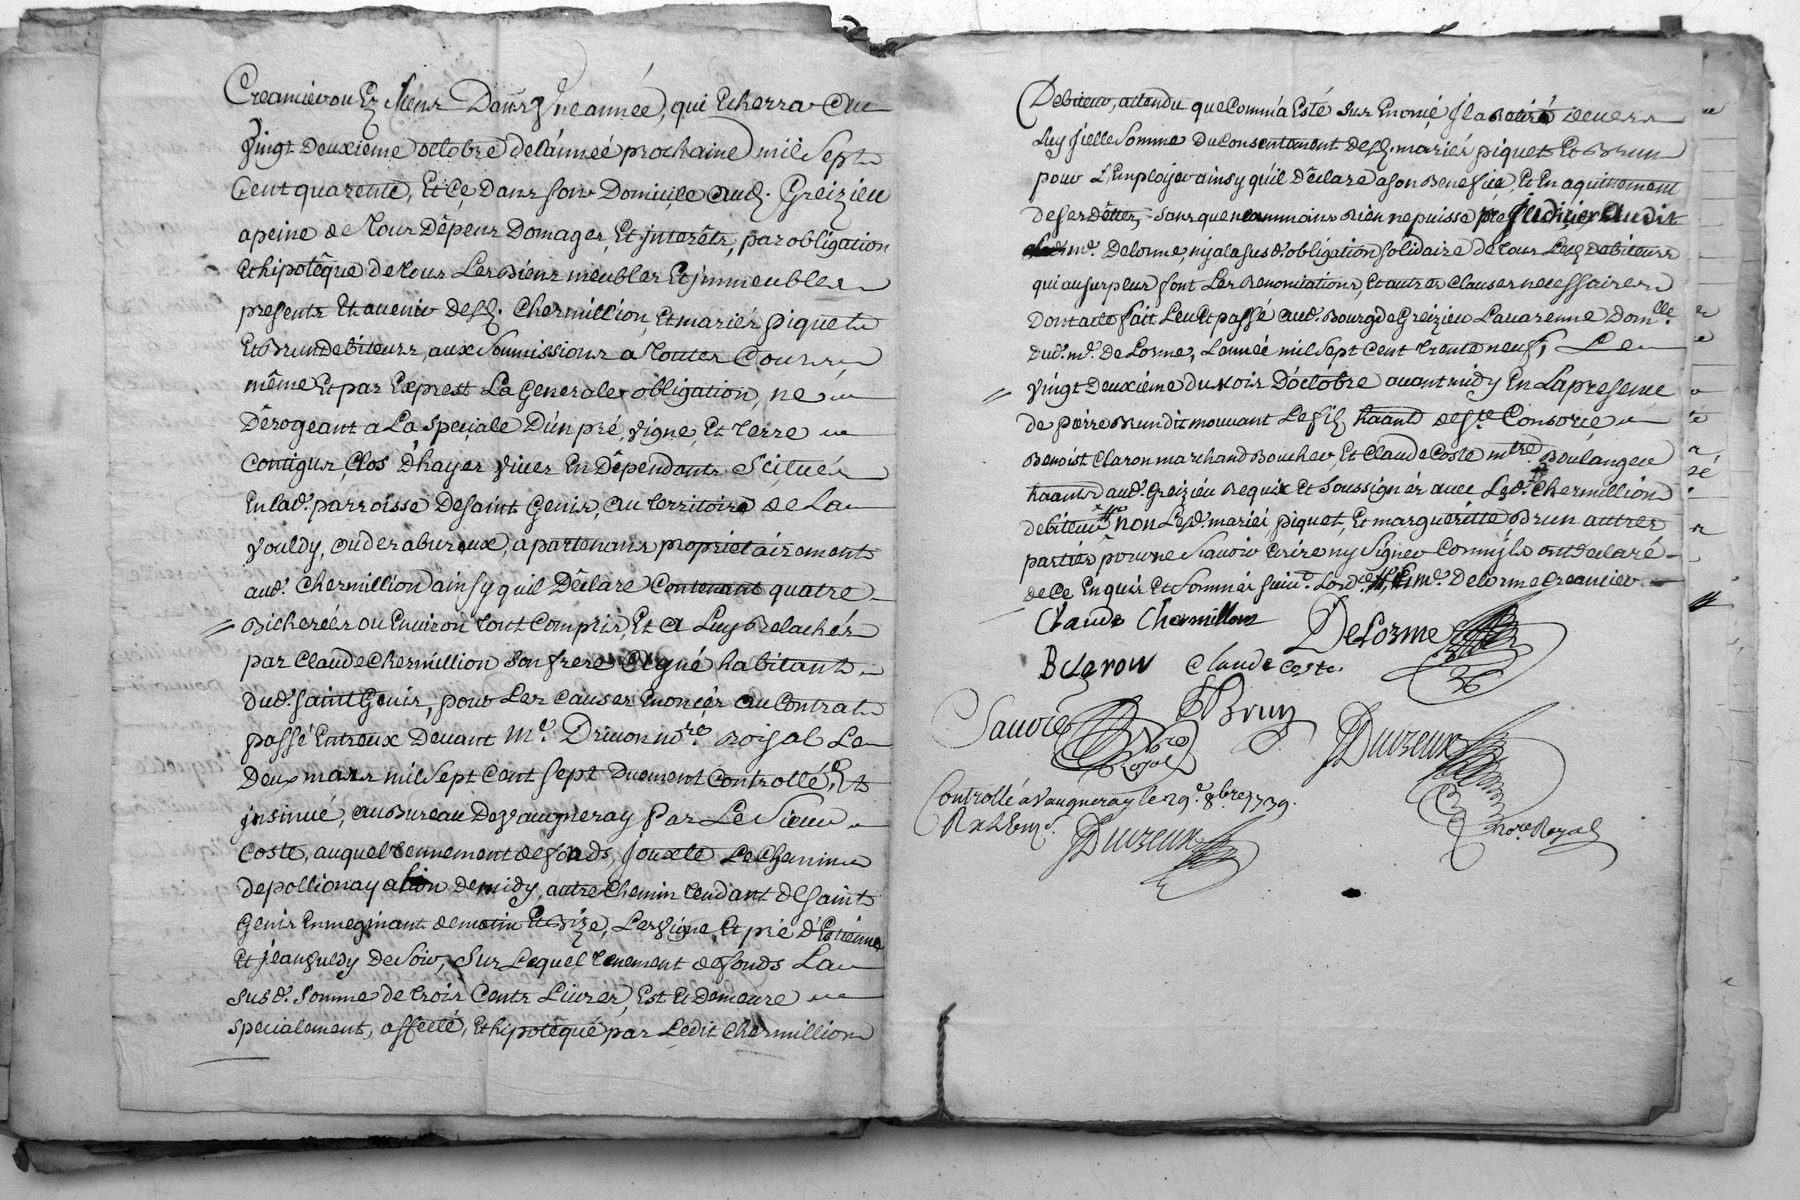 Creancier ou Ez siens Dans Une année, qui Echerra Au
Vingt Deuxieme octobre de L'année prochaine mil Sept
Cent quarente, Et Ce Dans son Domicile aud. Greizieu
a peine de tous Dêpens Domages, Et jnterêts, par obligation
Et hipotêque de tous Les Biens meubles Et jmmeubles
presents Et avenir desd. Chermillion, Et mariés piquet
Et Brun debiteurs, aux Soumissions a toutes Cours
même Et par Exprest La Generale obligation, ne
Dêrogeant a La Speciale D'un pré, vigne, Et terre
Contigus, Clos d'hayes vives En Dêpendants Scitués
En lad. parroisse de Saint Genis, Au territoire de La
Vouldy, ou des abureaux, apartenans proprietairement
aud. Chermillion ainsy quil Dêclare Contenant quatre
Bicherées ou Environ tout Compris, Et a Luy Relachés
par Claude Chermillion Son frere Aigné habitant
dud. Saint Genis, pour Les Causes Enoncés au Contrat
passé Entreux Devant Me. Drivon nore. Roisal Le
Deux mars mil Sept Cent Sept Duement Controllé, Et
jnsinué, au Bureau de Vaugneray Par Le Sieur
Coste, auquel tennement de fonds, jouxte Le Chemin
de pollionay a Lion de midy, autre Chemin tendant de Saint
Genis En megniant de matin Et Bize, Les Vigne, Et pré d'Estienne
Et jean Vuldy de Soir, Sur Lequel tenement de fonds La
Susd. Somme de trois Cents Livres, Est Et Demeure
specialement, affecté, Et hipotêqué par Ledit Chermillion
Debiteur, attendu que Comm'a Esté Sus Enoncé jl a Retiré devers
Luy jcelle Somme du Consentement desd. mariés piquet Et Brun
pour L'Employer ainsy qu'il Dêclare a son Benefice, Et En aquittement
de ses dêttes, sans que neammoins Rien ne puisse prejudicier Audit
me. Delorme, ny a la susd. obligation solidaire de tous Lesd. debiteurs
qui au surplus font Les Renonciations, Et autres Clauses necessaires
Dont acte fait Leu Et passé aud. Bourg de Greizieu Lavarenne Domlle.
dud. me. de Lorme, L'année mil Sept Cent trente neuf, Le
Vingt Deuxiéme du mois D'octobre avant midy En La presence
de pierre Brun dit mouvant Le fils haant de Ste Consorce
Benoist Claron marchand Boucher, Et Claude Coste mtre. Boulanger
haants aud. Greizieu Requis Et Soussignés avec Led. Chermillion
debiteur non Lesd. mariés piquet, Et margueritte Brun autres
parties pour ne Sçavoir Ecrire ny Signer Comm'jls ont declaré
de Ce Enquis Et Sommés Me. Delorme Creancier
Claude Chermillon
DeLorme
B Claron Claude Coste
P Brun
Sauvre
Nore
Royal
Duvzeux
Nore. Royal
Controllé a Vaugneray le 29e. 8bre 1739.
Duvzeux